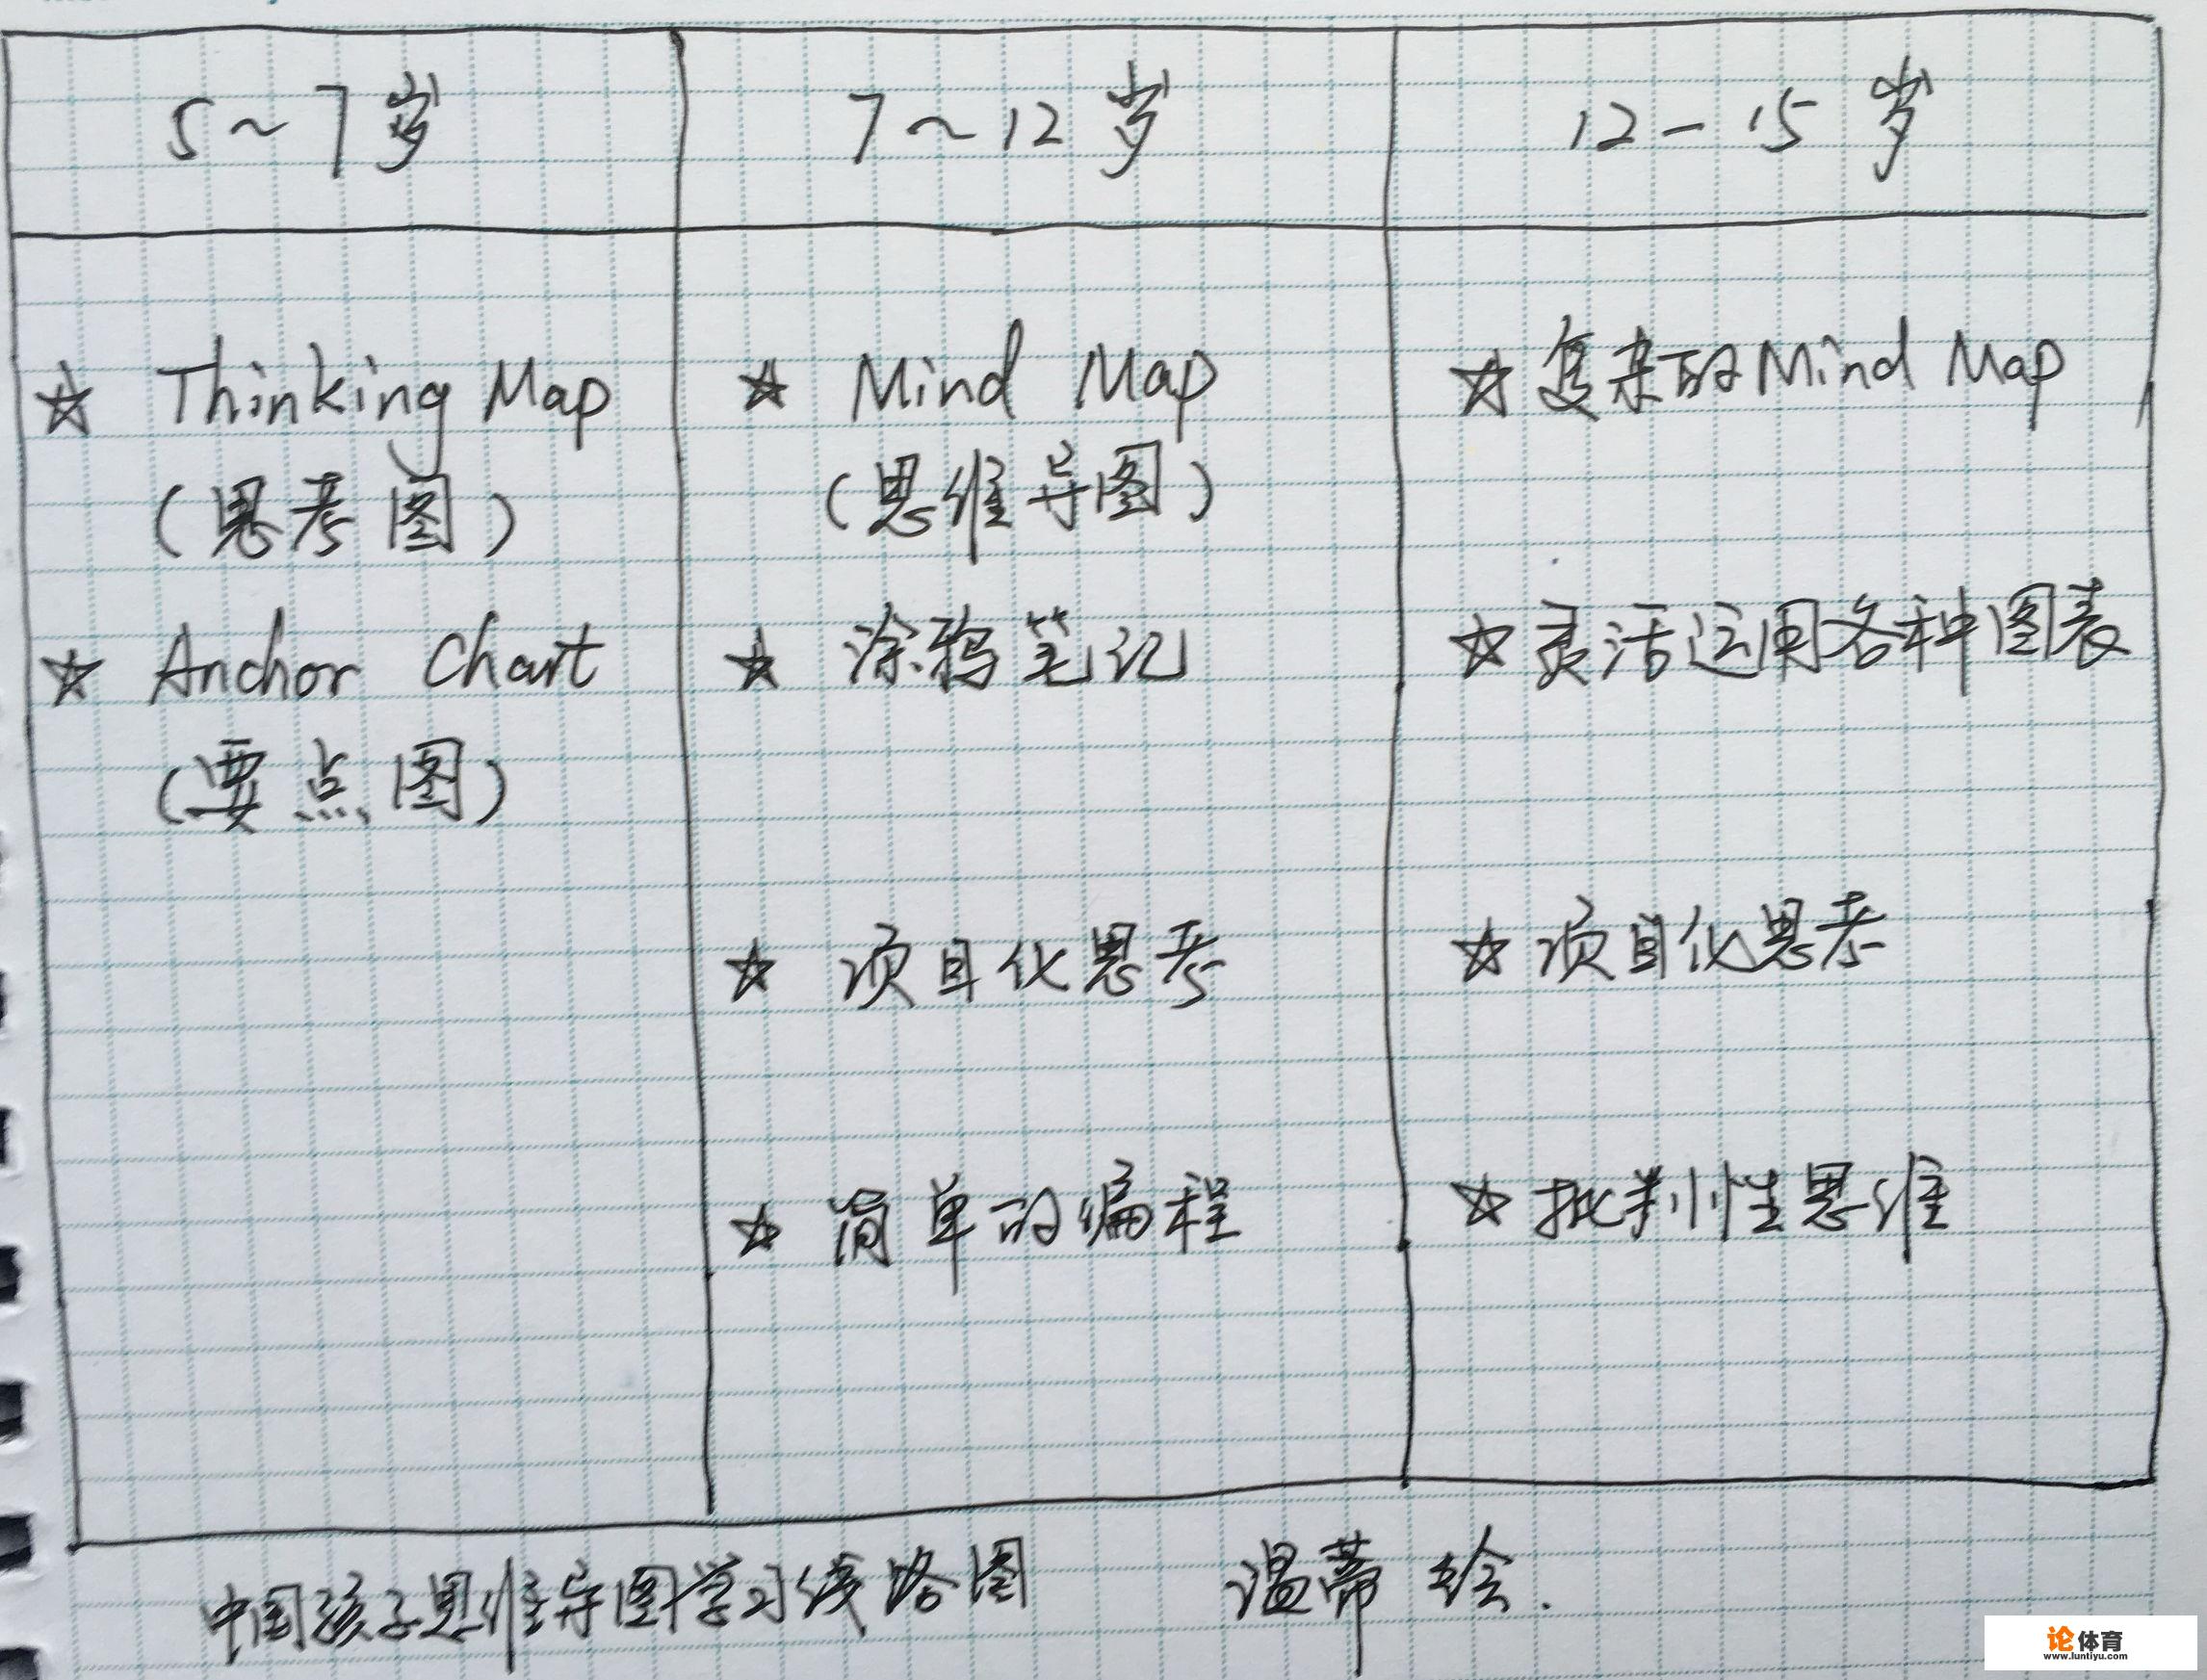 5~7岁
7~12岁
12-15岁
☆ Thinking Map
(思考图)
☆ Anchor Chart
(要点图)
☆ Mind Map
(思维导图)
☆ 涂鸦笔记
☆ 项目化思考
☆ 简单的编程
☆ 复杂的Mind Map
☆ 灵活运用各种图表
☆ 项目化思考
☆ 批判性思维
中国孩子思维导图学习线路图 温蒂 绘.
论体育
www.luntiyu.com